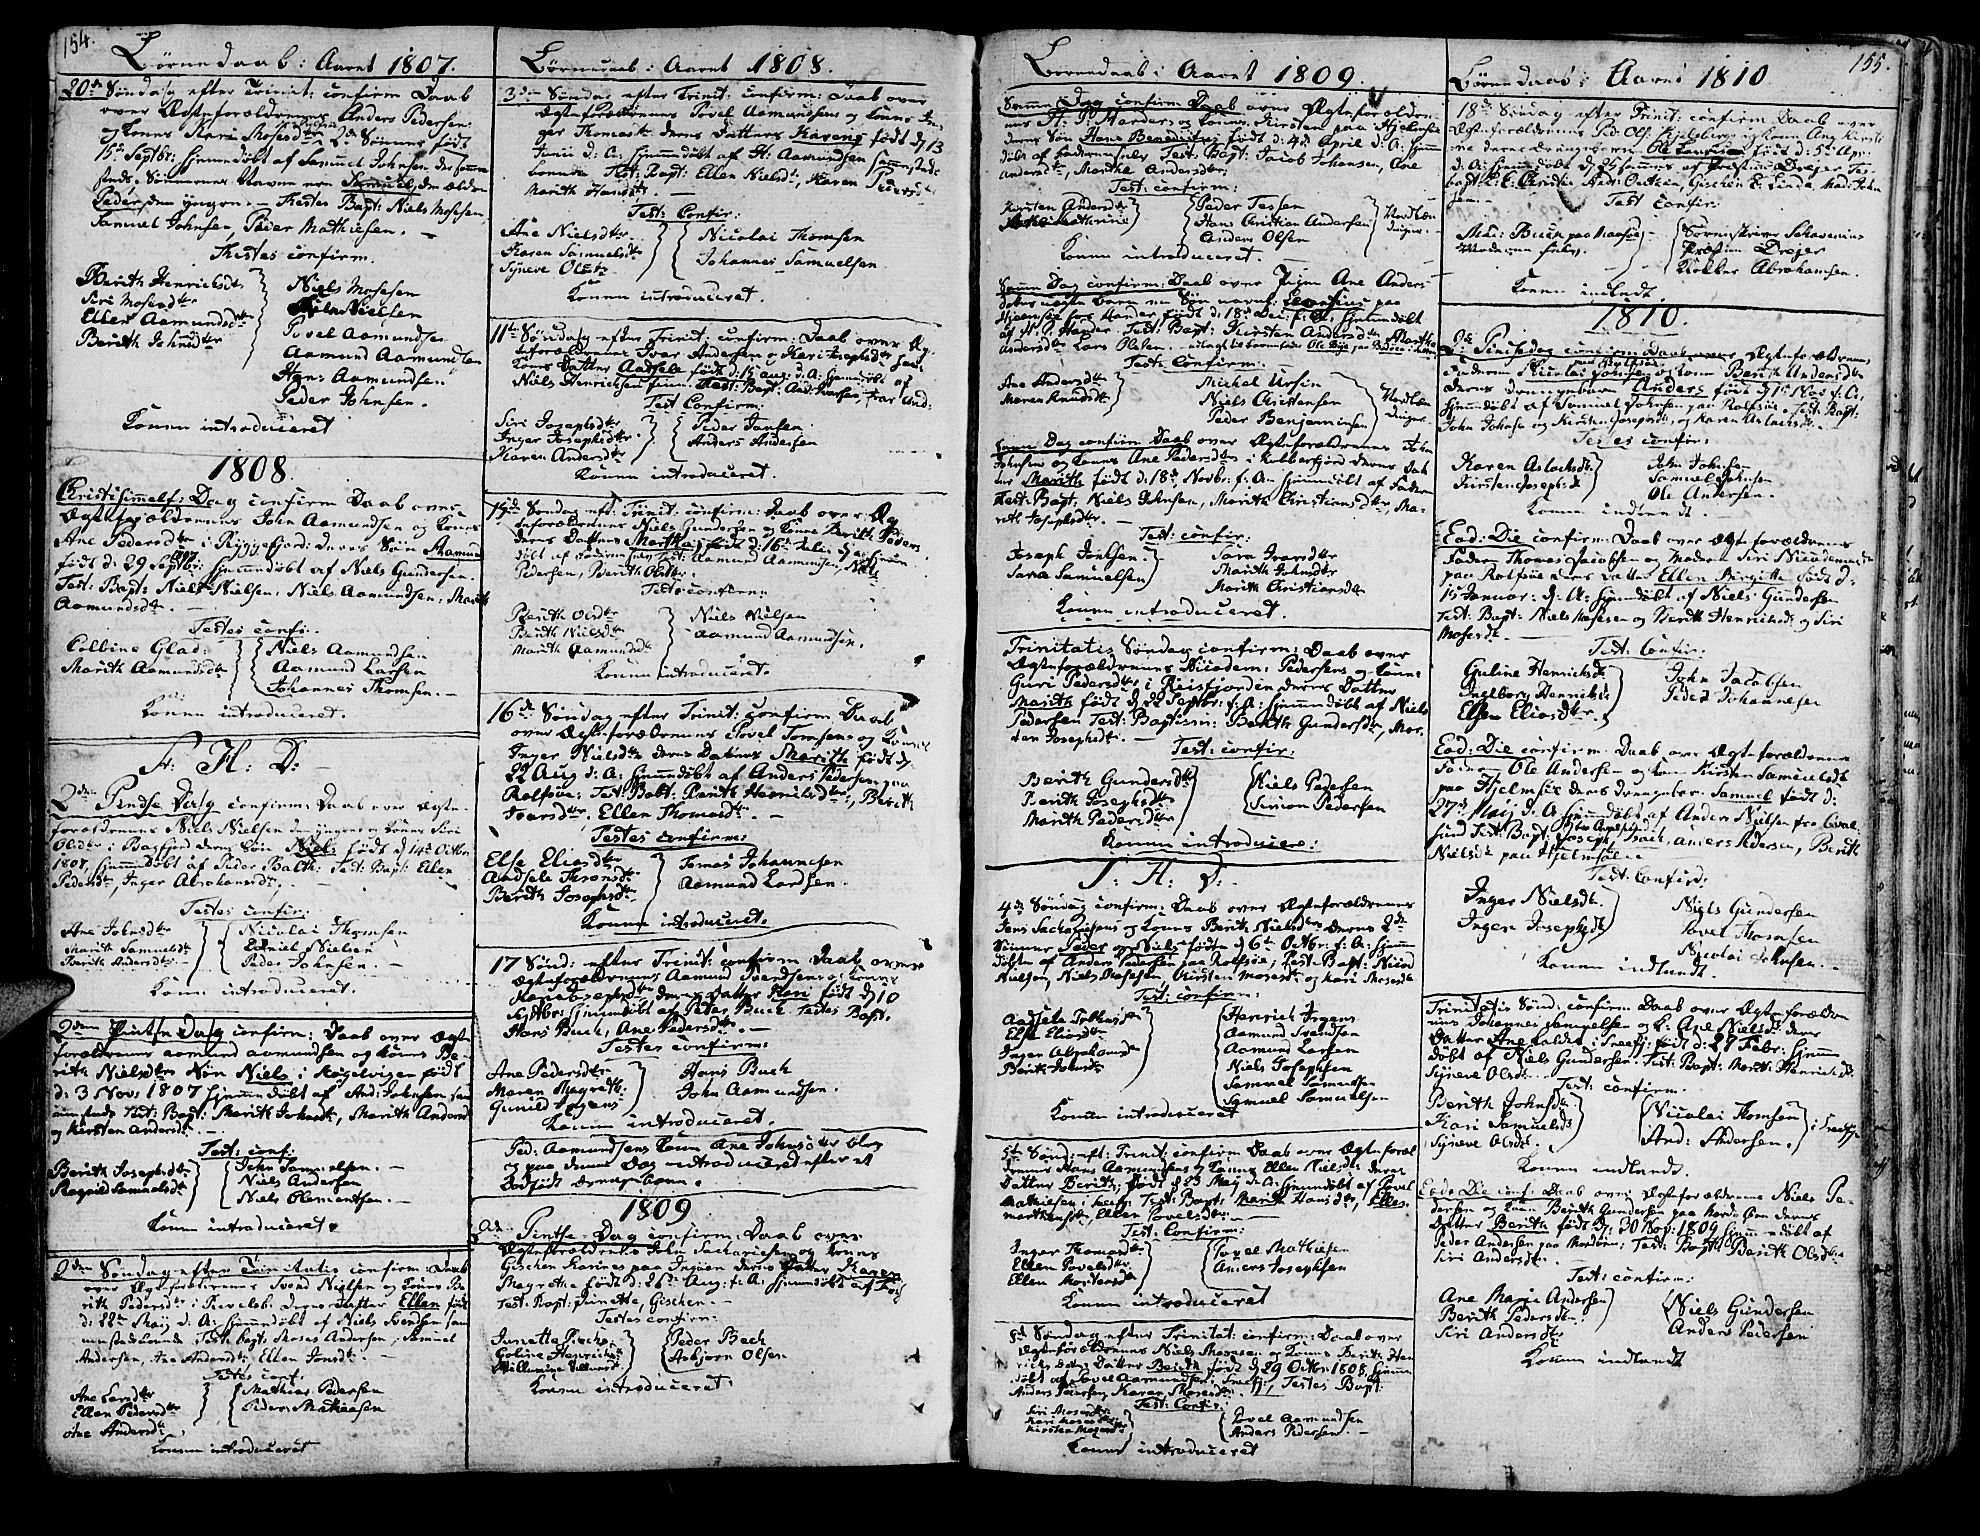 154.
Børnedaab: Aaret 1807.
20de Søndag efter Trinit: confirm Daab
over Ægteforældrenes Anders Pedersen
og Konns Kari Mosesdtr 2de Sønner født
15de Septbr: hjemmedøbt af Samuel Johnsen der sam̄e
steds, Sønnernes Navne ere Samuel, den ældre
Peder, den yngre. Testes Bapt: Niels Mosesen,
Samuel Johnsen, Peder Mathiesen.
Testes confirm.
Berith Henrichsdtr
Siri Mosesdtr
Ellen Aamundsdtr
Berith Johnsdtr
Niels Mosesen
Nielsen
Povel Aamundsen
Aamund Aamundsen
Hans Aamundsen
Peder Johnsen.
Konen introduceret
1808.
Christi himmelf: Dag confirm Daab over
Ægteforældrenes John Aamundsen og Konns
Ane Pedersdtr i Ryggefjord: deres Søn Aamund
født d: 29 Septbr: hjemmedøbt af Niels Gundersen.
Test: Bapt: Niels Nielsen, Niels Aamundsen, Marith
Aamundsdtr.
Testes confir.
Colbine Glad:
Marith Aamundsdtr
Niels Aamundsen
Aamund Larsen
Johannes Thomsen.
Konen introduceret.
F: H: D:
2den Pindse Dag confirm: Daab over Ægte-
forældrenes Niels Nielsen den yngre og Konns Siri
Olsdtr i Bagfjord deres Søn Niels født d: 14de Octbr
1807, hjemmedøbt af Peder Balth: Test: Bapt: Ellen
Pedersdtr, Inger Abrahamsdtr.
Testes confir:
Ane Johnsdtr
Marith Samuelsdtr
Berith Andersdtr
Nicolai Thomsen
Daniel Nielsen
Peder Johnsen.
Konen introduceret.
2den Pintse Dag confirm: Daab over Ægte
forældrenes Aamund Aamundsen og Konns Be-
rith Nielsdtr Søn Niels i Kogelvigen født
d: 3 Nov: 1807 hjemmedøbt af And: Johnsen sam
mesteds Test: Bapt: Marith Johnsdtr, Marith Andersd
og Kirsten Andersdtr.
Test: conf:
Berith Josephsdtr
Ragnild Samuelsdtr
John Samuelsen.
Niels Andersen
Niels Clementsen.
Konen introduceret
2den Søndag efter Trinitatis confirm: Daab
over Ægteforældrenes Svend Nielsen og Konns Be-
rith Pedersdtr i deres Datter Ellen født
d: 22de Maj d: A: hjemmedøbt af Niels Svendsen sam
mesteds Test: bapt: Moses Andersen, Samuel
Andersen, Ane Andersdtr Ellen Jonsdtr.
Testes conf:
Ane Larsdtr
Ellen Pedersdtr
Ane Andersdtr
Mathias Pedersen
Peder Mathiesen
Konen introduceret
Børnedaab: Aaret 1808.
3die Søndag efter Trinit: confirm: Daab over
Ægteforældrenes Povel Aamundsens og Konns In-
ger Thomasdtr deres Datters Karens født d: 13
Junii d: A: hjemmedøbt af H: Aamundsen sammesteds
Test: Bapt: Ellen Nielsdtr, Karen Pedersdtr
Marith Hansdtr.
Test: Confir:
Ane Nielsdtr
Karen Samuelsdtr
Syneve Olsdtr
Nicolai Thomsen
Johannes Samuelsen.
Konen introduceret.
11te Søndag efter Trinit: confirm: Daab over Æg-
teforældrenes Ivar Andersen og Kari Josephsdtr
Konns Datter Aadsele født d: 15 Aug: d: A: hjemmedøbt af
Niels Henrichsen Test: Bapt: And: Iversen,
Test Confirm:
Siri Josephsdtr
Inger Josephsdtr
Karen Andersdtr
Peder Jansen
Anders Andersen
Konen introduceret.
15de Søndag eft: Trinit: confirm: Daab over Æg
teforældrenes Niels Gundersen og Konns Berith Peders
deres Datters Martha, født d: 16de Julii d: A: hjem
døbt af Test: Aamund Aamundsen, Niels
Pedersen, Berith Olsdtr.
Testes confirm
Berith Olsdtr
Berith Nielsdtr
Marith Aamundsdtr
Niels Nielsen
Aamund Aamundsen.
Konen introduceret.
16de Søndag efter Trinit: confirm Daab
over Ægteforældrenes Povel Tomsen og Konns
Inger Nielsdtr deres Datters Marith født d:
22 Aug d: A: hjemmedøbt af Anders Pedersen paa
Rolfsøe: Test: Babt: Berith Henrichsdtr, Berith
Ivarsdtr: Ellen Thomasdtr.
Testes confirm:
Else Eliasdtr
Aadsele Thronsdtr
Berith Josephsdtr
Tomas Johannesen
Aamund Larsen.
Konen introduceret.
17 Sønd: efter Trinit: confirm Daab over
Ægteforældrenes Aamund Svendsens og Konns
Karen deres Datter Kari født d: 10
Septbr: hjemmedøbt af Peder Buck Testes Bapt.
Hans Buck, Ane Pedersdtr.
Testes confirm:
Ane Pedersdtr
Maren Magreth
Gunild
Hans Buch
John Aamundsen.
Konen introduceret.
Ped: Aamundsens Kone Ane Johnsdtr blev
og paa denne Dag introduceret efter et
dødfødt drengebarn.
1809
2den Pintse-Dag confirm: Daab over
Ægteforældrenes John Sachariesen og Konns
Gischen Karines paa Ingøen deres Datter Karen
Magrethe født d: 26de Aug: f: A: hjemmedøbt af
Test. Bapt: Junette, Gischen.
Testes confir:
Junetta
Goline Henrichs
Willumine
Peder Bech
Asbjorn Olsen
Konen introduceret.
Børnedaab i Aaret 1809.
Samme Dag confirm Daab over Ægteforældre-
nes H: P: Handers og Konns Kirsten paa Hjelmsøe
deres Søn Hans Benedictus født d: 4de April d: A: hjem̄
døbt af Test: Bapt: Jacob Johansen, Ane
Andersdtr, Martha Andersdtr:
Test: confirm:
Kirsten Andersdtr
Cathrine
Peder Tessen
Hans Christian Andersen
Anders Olsen
Nordlæn
dinger.
Konen introduceret.
Samme Dag confirm: Daab over Pigen Ane Anders
datter uægte Barn en Søn navnl: Leonhius paa
Hjelmsøe hos Hander født d: 18de Dec: f: A: hjemmedøbt
af H: P. Hander Test: Bapt: Kirsten Andersdtr, Martha
Andersdtr Lars Olsen. udlagt til barnefader Ole Bye paa
Test: Confirm:
Ane Andersdtr
Maren Knudsdtr
Michel Ursin
Niels Christensen
Peder Benjaminsen
Nordlæn
dinger.
Samme Dag confirm Daab over Ægteforældrenes John
Johnsen og Konns Ane Pedersdtr i Kobberfjord deres Dat
ter Marith født d: 18de Novbr: f: A: hjemmedøbt af Faderen
Test: Bapt: Niels Johnsen, Marith Christiansdtr, Ma-
reth Josephsdtr.
Test: confir:
Joseph Jonsen
Sara Samuelsen
Sara Ivarsdtr
Marith Johnsdtr
Marith Christiansdtr
Konen introduceret.
Trinitatis Søndag confirm: Daab over
Ægteforældrenes Nicodem: Pedersens og Konns
Guri Pedersdtr i Reisfjorden deres Datter
Marith født d: 22 Septbr: f: A: hjemmedøbt af Niels
Pedersen Test: Baptismi: Berith Gundersdtr, Mor-
ten Josephsdtr.
Test: confir:
Berith Gundersdtr
Berith Josephsdtr
Marith Pedersdtr
Niels Pedersen
Simon Pedersen
Konen introducere:
J: H: D:
4de Søndag confirm: Daab over Ægteforældrenes
Jens Sachariesens og Konns Berith Nielsdtr deres 2de
Sønner Peder og Niels fødte d: 6te Octbr: f: A: hjemme
døbte af Anders Pedersen paa Rolfsøe; Test: Bapt: Nicod
Nielsen, Niels Mosesen Kirsten Mosesdtr og Kari Mosesdtr
Test: confirm:
Aadsela
Else Eliasdtr
Inger Abrahamsdtr
Berith Johnsdtr
Henrich Irgens
Aamund Svendsen
Aamund Larsen
Niels Josephsen
Samuel Samuelsen
Samuel Samuelsen
Konen introduceret
5te Sønd: eft: Trinit: confirm Daab over Ægteforæl
drenes Hans Aamundsens og Konns Ellen Nielsdtr deres
Datter Berith, født d: 23 Maij d: A: hjemmedøbt af Povel
Mathiesen Test: Bapt: Marith Hansdtr, Ellen
Ellen Povelsdtr.
Test: Confirm:
Inger Thomasdtr
Ellen Povelsdtr
Ellen Mortensdtr
Povel Mathiesen
Anders Josephsen
Konen introduceret
8de Søndag efter Trinitat: confirm: Daab over
Ægteforældrenes Niels Mosesen og Konns Berith Hen
richsdtr Datter Berith født d: 29 Octbr: 1808, hjemme
døbt af Povel Aamundsen, Testes Bapt:
Anders Pedersen, Karen Mosesdtr.
Test: Confir:
Siri Mosesdtr
Kari Mosesdtr
Kirsten Mogensdtr
Povel Aamundsen
Anders Pedersen.
Konen introduceret
155.
Børnedaab: Aaret 1810
18de Søndag efter Trinit: confirm Daab over
Ægteforældrenes Ped: Ols: Kjelsberg og Konns Ane Kirsti
ne deres drengebarn Ole født d: 5te Apr:
d: A: hjemmedøbt d: 25 Provstinde Dreyer Tes-
bapt: Hedv: Gischen E: Linde Mads John
sen.
Test Confir:
Md: Buck paa Maasøe
Sorenskriver
Provstinde Dreyer
Kolke Abrahamsen.
Konen indledt.
1810.
2de Pintsedag confirm: Daab over Ægteforældrenes
Faderen Nicolai Johnsen og Konns Berith Andersdtr
deres drengebarn Anders født d: 1ste Nov: f: A:
hjemmedøbt af Samuel Johnsen paa Rolfsøe. Test: Bapt:
John Johnsen og Kirsten Josephsdtr, og Karen Aslachsdtr.
Testes confir:
Karen Aslachsdtr
Kirsten Josephsdtr
John Johnsen
Samuel Johnsen
Ole Andersen.
Konen indledt.
Eod: Die confirm: Daab over Ægteforældrenes
Fader Thomas Jacobsen og Moder Siri Nicodemus
paa Rolfsøe deres Datter Ellen Birgitte født d:
15 Januar: d: A: hjemmedøbt af Niels Gundersen
Test: Bapt: Niels Mosesen og Berith Henrichsdtr og Siri
Mosesdtr.
Test: Confir:
Guline Henrichsdtr
Ingeborg Henrichsdtr
Elsen Eliasdtr.
John Jacobsen
Peder Johannesen
Eod: Die confirm. Daab over Ægteforældrenes
Fader Ole Andersen og Kone Kirsten Samuelsdtr
paa Hjelmsøe deres drengebar: Samuel født d:
27de Maij d: A: hjemmedøbt af Anders Nielsen fra
sund Test: Bapt: Joseph Isach, Anders Pedersen, Berith
Nielsdtr paa Hjelmsøe.
Test: Confir:
Inger Nielsdtr
Inger Josephsdtr
Niels Gundersen
Povel Thomsen
Nicolai Johnsen.
Konen indledt.
Trinitatis Sønd: confirm Daab over Ægteforældre
nes Johannes Samuelsen og K: Ane Nielsdtr deres
Datter Ane kaldet i Sneefj: født d: 27 Febr: hjemme
døbt af Niels Gundersen. Test: Bapt: Marith Henrichsdtr
Synneve Olsdtr.
Test: confirm.
Berith Johnsdtr
Kari Samuelsdtr
Synneve Olsdtr
Nicolai Thomsen
And: Andersen.
i Sneefj.
Konen indledt.
Eod: Die conf: Daab over Ægteforældrene Niels Pe-
dersen og Konns Berith Gundersen paa deres
Datter Berith født d: 30 Nov: 1809 hjemmedøbt af
Peder Andersen paa Test: Bapt: Berith Olsdtr
Siri Andersdtr.
Test: confirm:
Ane Marie Andersen
Berith Pedersdtr.
Siri Andersdtr
Niels Gundersen
Anders Pedersen
Konen indledt